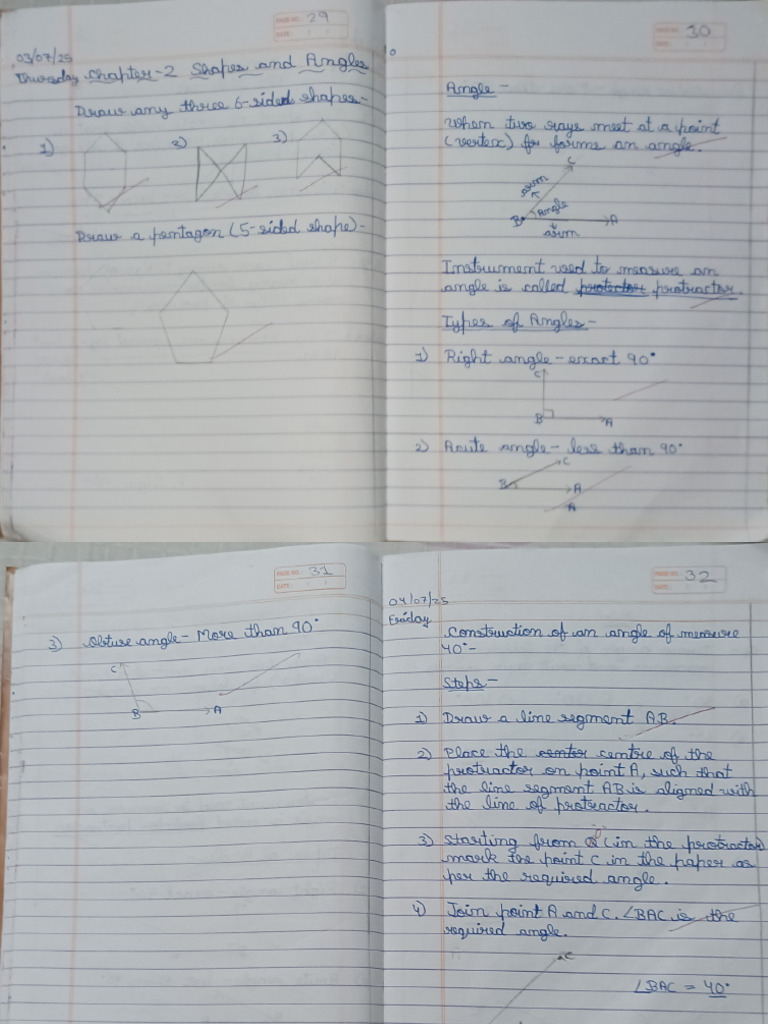 PAGE NO.: 29
DATE: / /
03/07/25
Thursday Chapter-2 Shapes and Angles
Draw any three 6-sided shapes-
1) 2) 3)
Draw a pentagon (5-sided shape)-
PAGE NO.: 30
DATE: / /
Angle-
When two rays meet at a point
(vertex) for forms an angle.
C
arm
Angle
B A
arm
Instrument used to measure an
angle is called protector protractor.
Types of Angles-
1) Right angle - exact 90°
C
B A
2) Acute angle - less than 90°
C
B A
A
PAGE NO.: 31
DATE: / /
3) Obtuse angle - More than 90°
C
B A
PAGE NO.: 32
DATE: / /
04/07/25
Friday
Construction of an angle of measure
40°-
Steps-
1) Draw a line segment AB.
2) Place the center centre of the
protractor on point A, such that
the line segment AB is aligned with
the line of protractor.
3) Starting from 0° (in the protractor)
mark the point C in the paper as
per the required angle.
4) Join point A and C. ∠BAC is the
required angle.
C
∠BAC = 40°